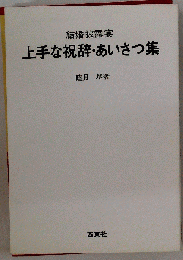 結婚披露宴
上手な祝辞・あいさつ集
西東社